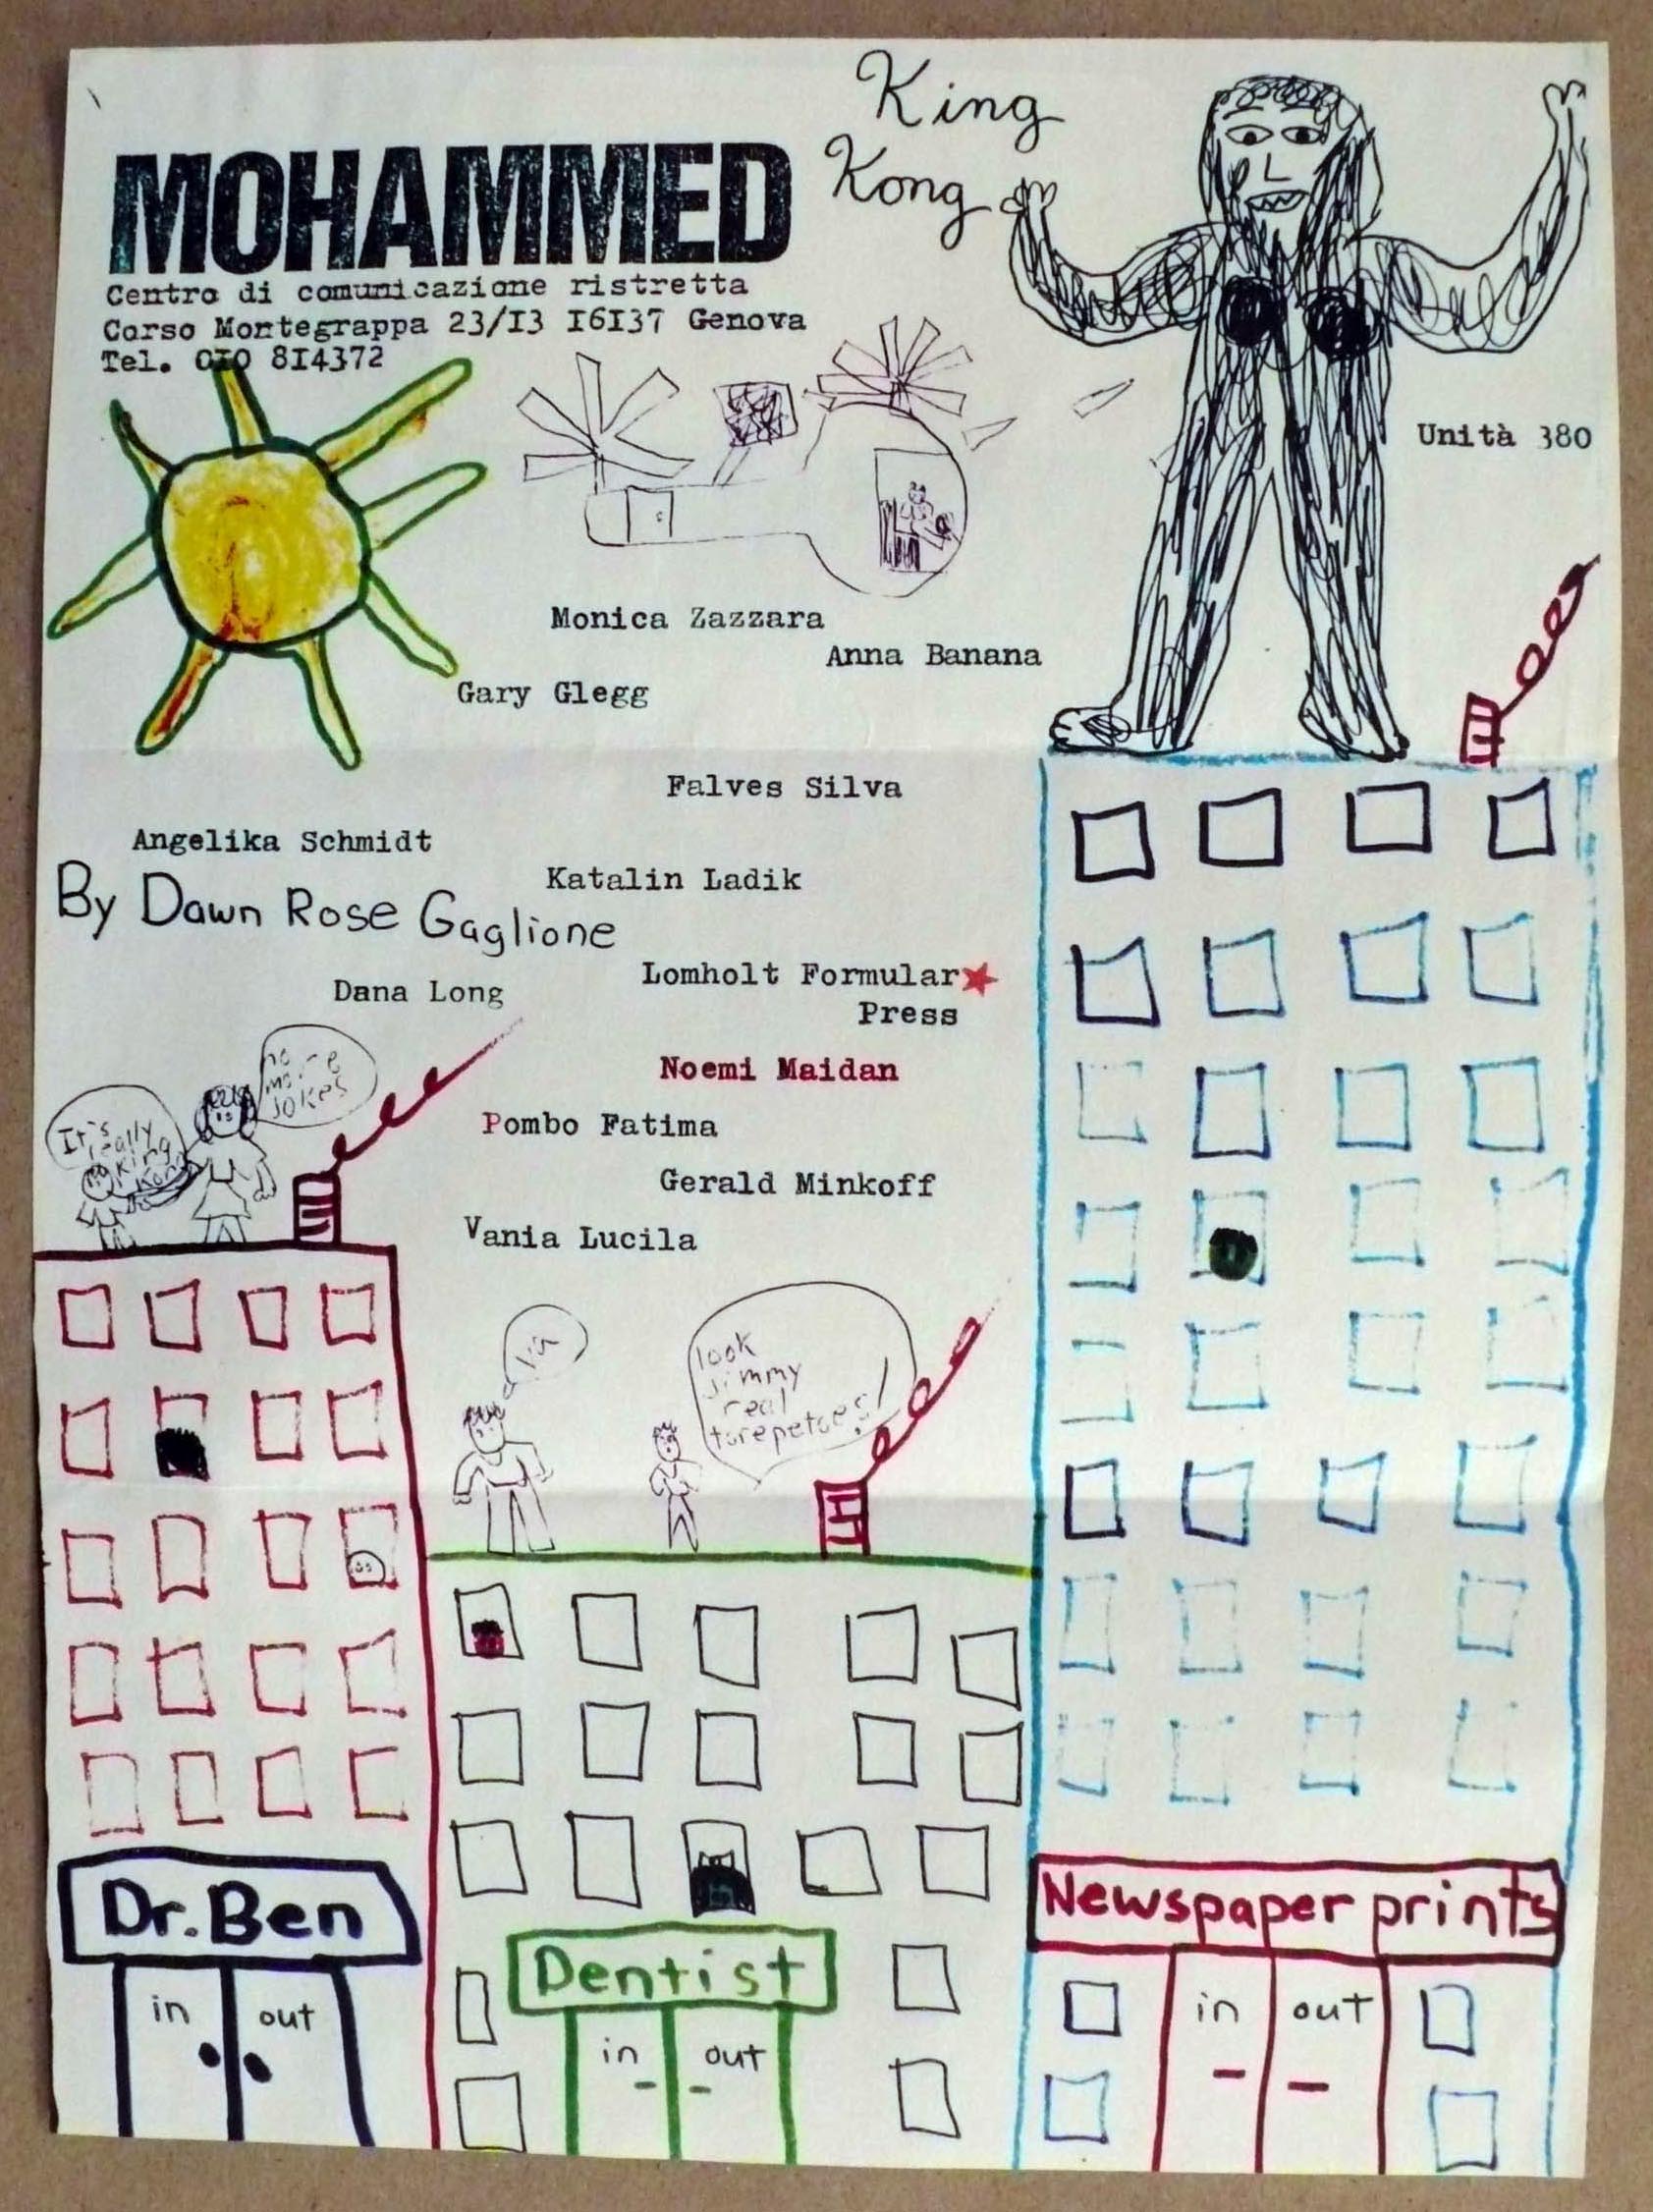 King
Kong
MOHAMMED
Centro di comunicazione ristretta
Corso Montegrappa 23/I3 I6I37 Genova
Tel. OIO 8I4372
Unità 380
Monica Zazzara
Anna Banana
Gary Glegg
Falves Silva
Angelika Schmidt
Katalin Ladik
By Dawn Rose Gaglione
Lomholt Formular
Press
Dana Long
Noemi Maidan
Pombo Fatima
Gerald Minkoff
Vania Lucila
no
more
jokes
It's
really
king
Kong
look
jimmy
real
Dr. Ben
in
out
Dentist
in
out
Newspaper prints
in
out